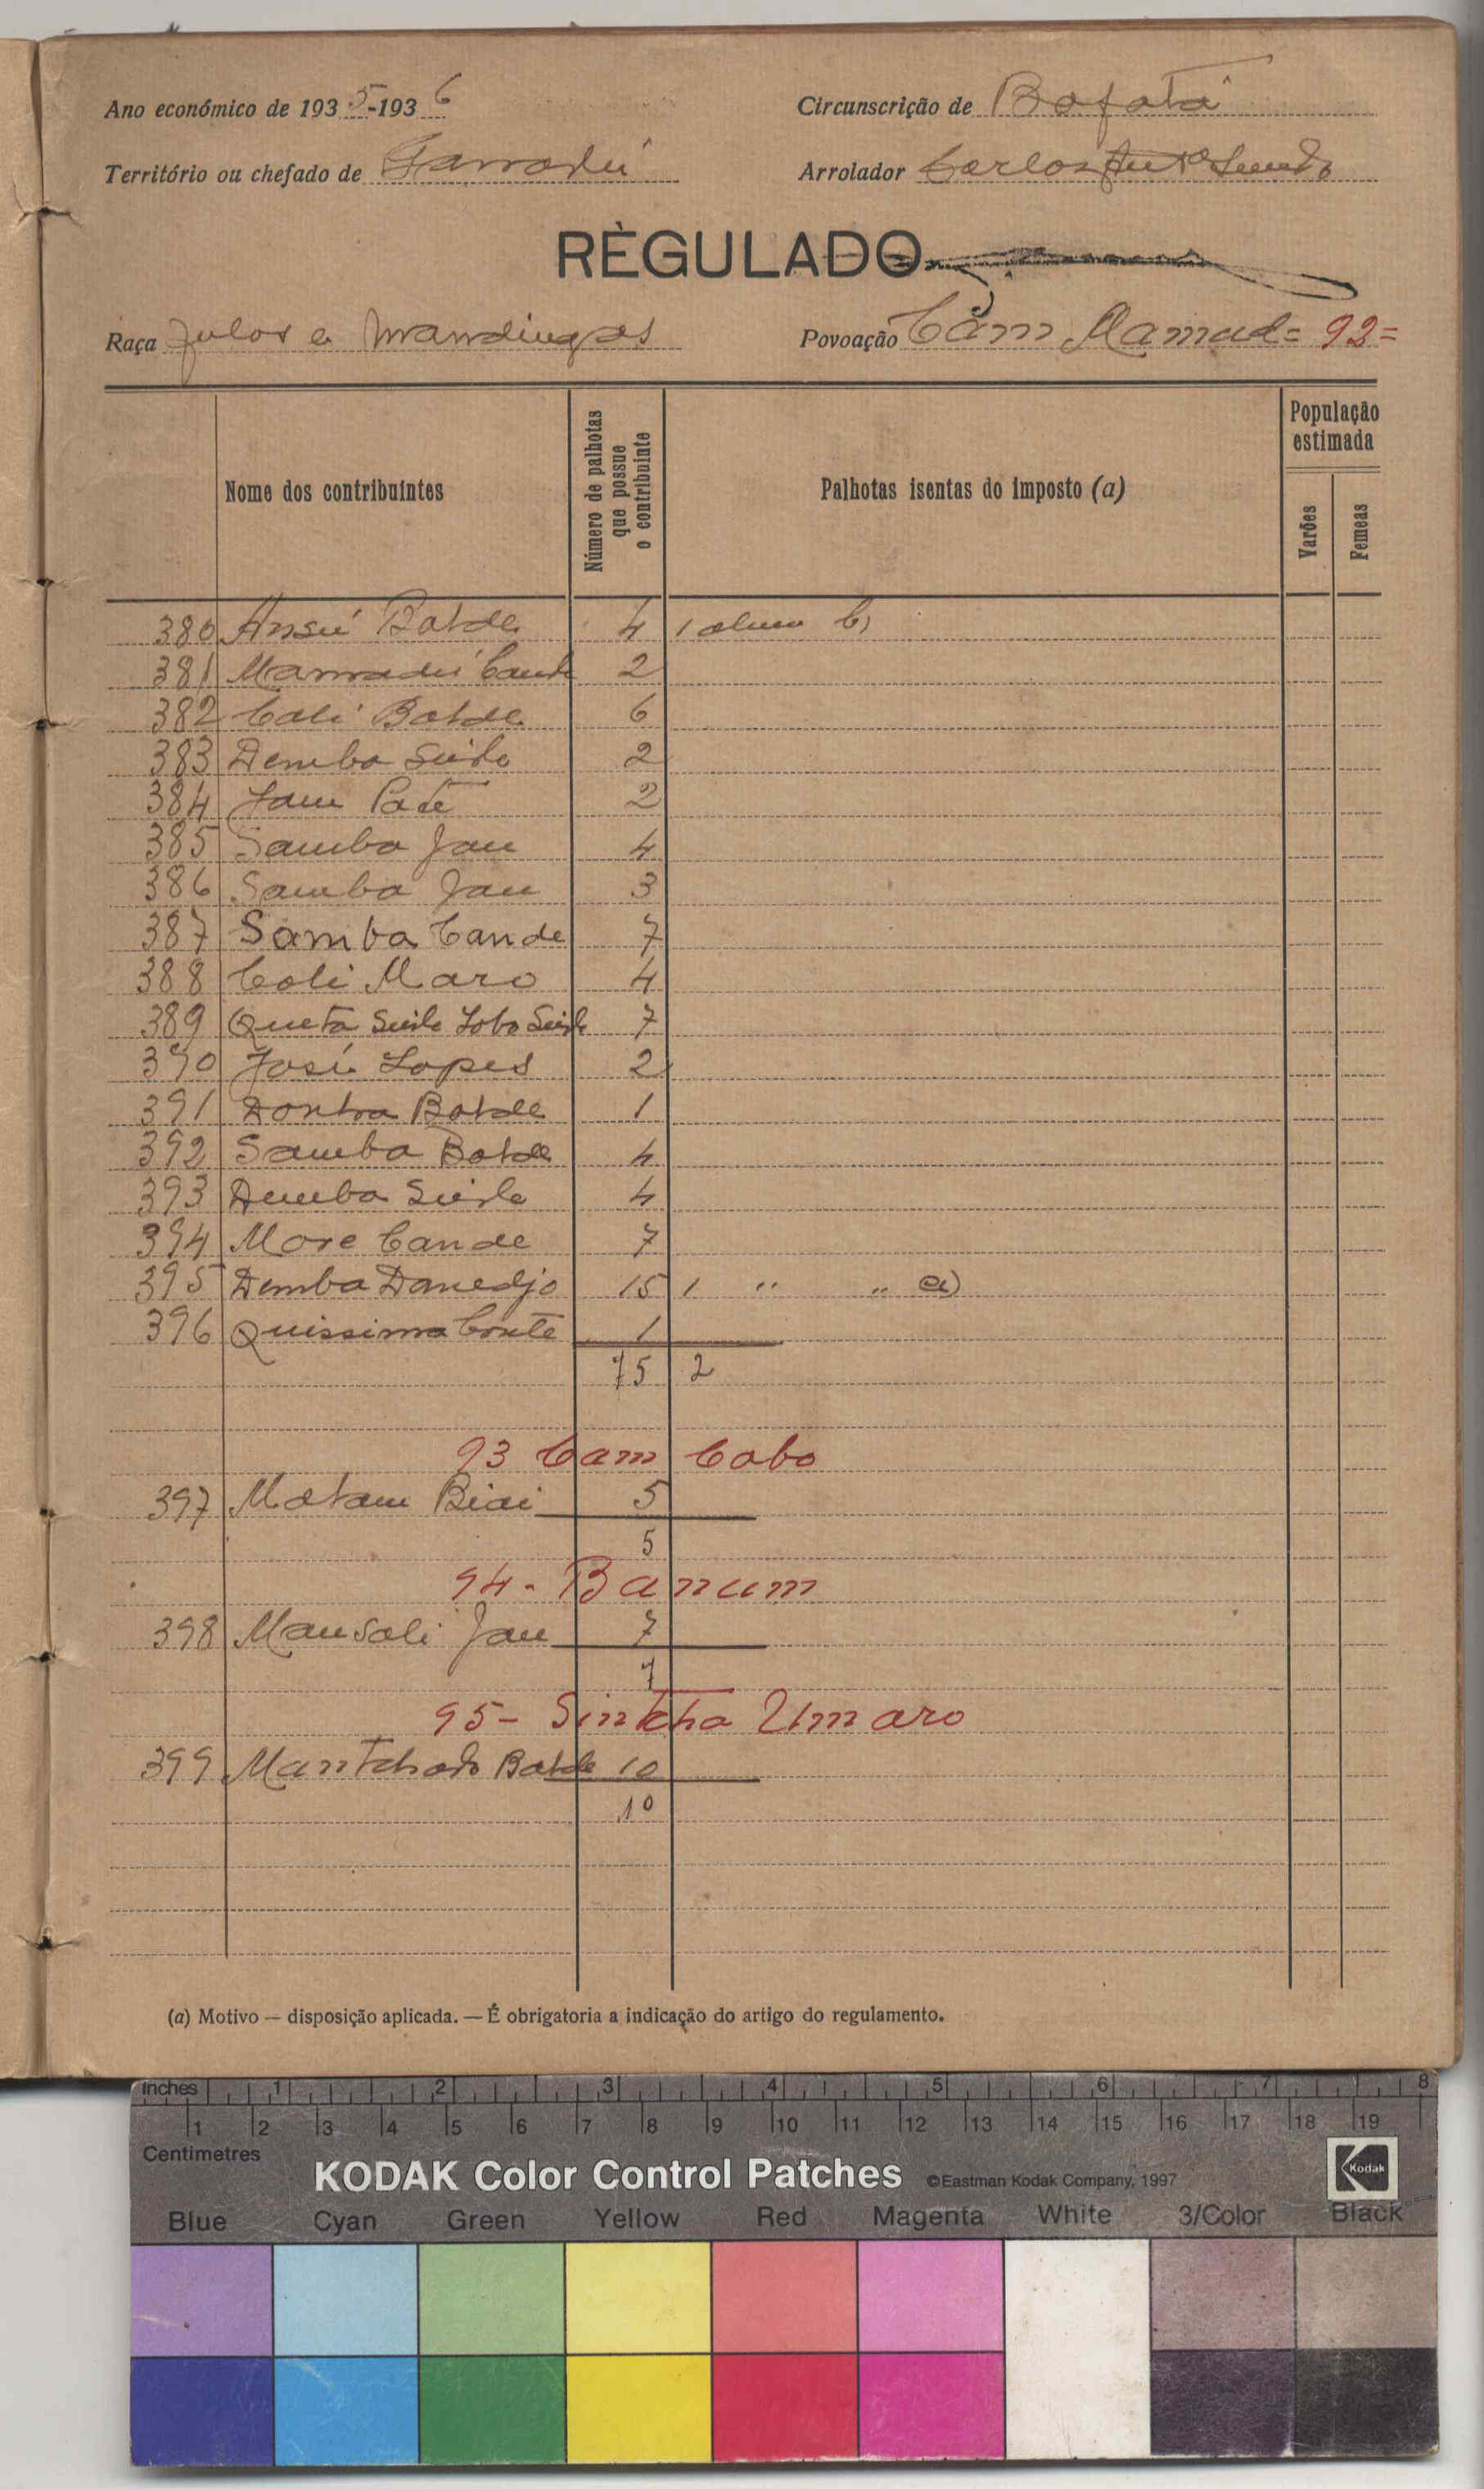 Ano económico de 1935-1936
Circunscrição de Bafatá
Território ou chefado de
Arrolador Carlos
RÈGULADO
Raça Fulas e Mandingas
Povoação Cam Mamud = 92 =
Nome dos contribuintes
Número de palhotas que possue o contribuinte
Palhotas isentas do imposto (a)
População estimada
Varões
Femeas
380 Ansú Balde 4 1 b)
381 Mamadú Cande 2
382 Cali Balde 6
383 Demba Seidi 2
384 Jau Paté 2
385 Samba Jau 4
386 Samba Jau 3
387 Samba Cande 7
388 Coli Maro 4
389 Queta 7
390 José Lopes 2
391 Balde 1
392 Samba Balde 4
393 Demba 4
394 More Cande 7
395 Demba Danedjo 15 1 " " a)
396 Quissima Conte 1
75 2
93 Cam Cabo
397 Matam Biai 5
5
94 - Banum
398 Mansali Jau 7
7
95 - Sintcha Umaro
399 Balde 10
10
(a) Motivo — disposição aplicada. — É obrigatoria a indicação do artigo do regulamento.
Inches 1 2 3 4 5 6 7 8
1 2 3 4 5 6 7 8 9 10 11 12 13 14 15 16 17 18 19
Centimetres
KODAK Color Control Patches ©Eastman Kodak Company, 1997 Kodak
Blue Cyan Green Yellow Red Magenta White 3/Color Black